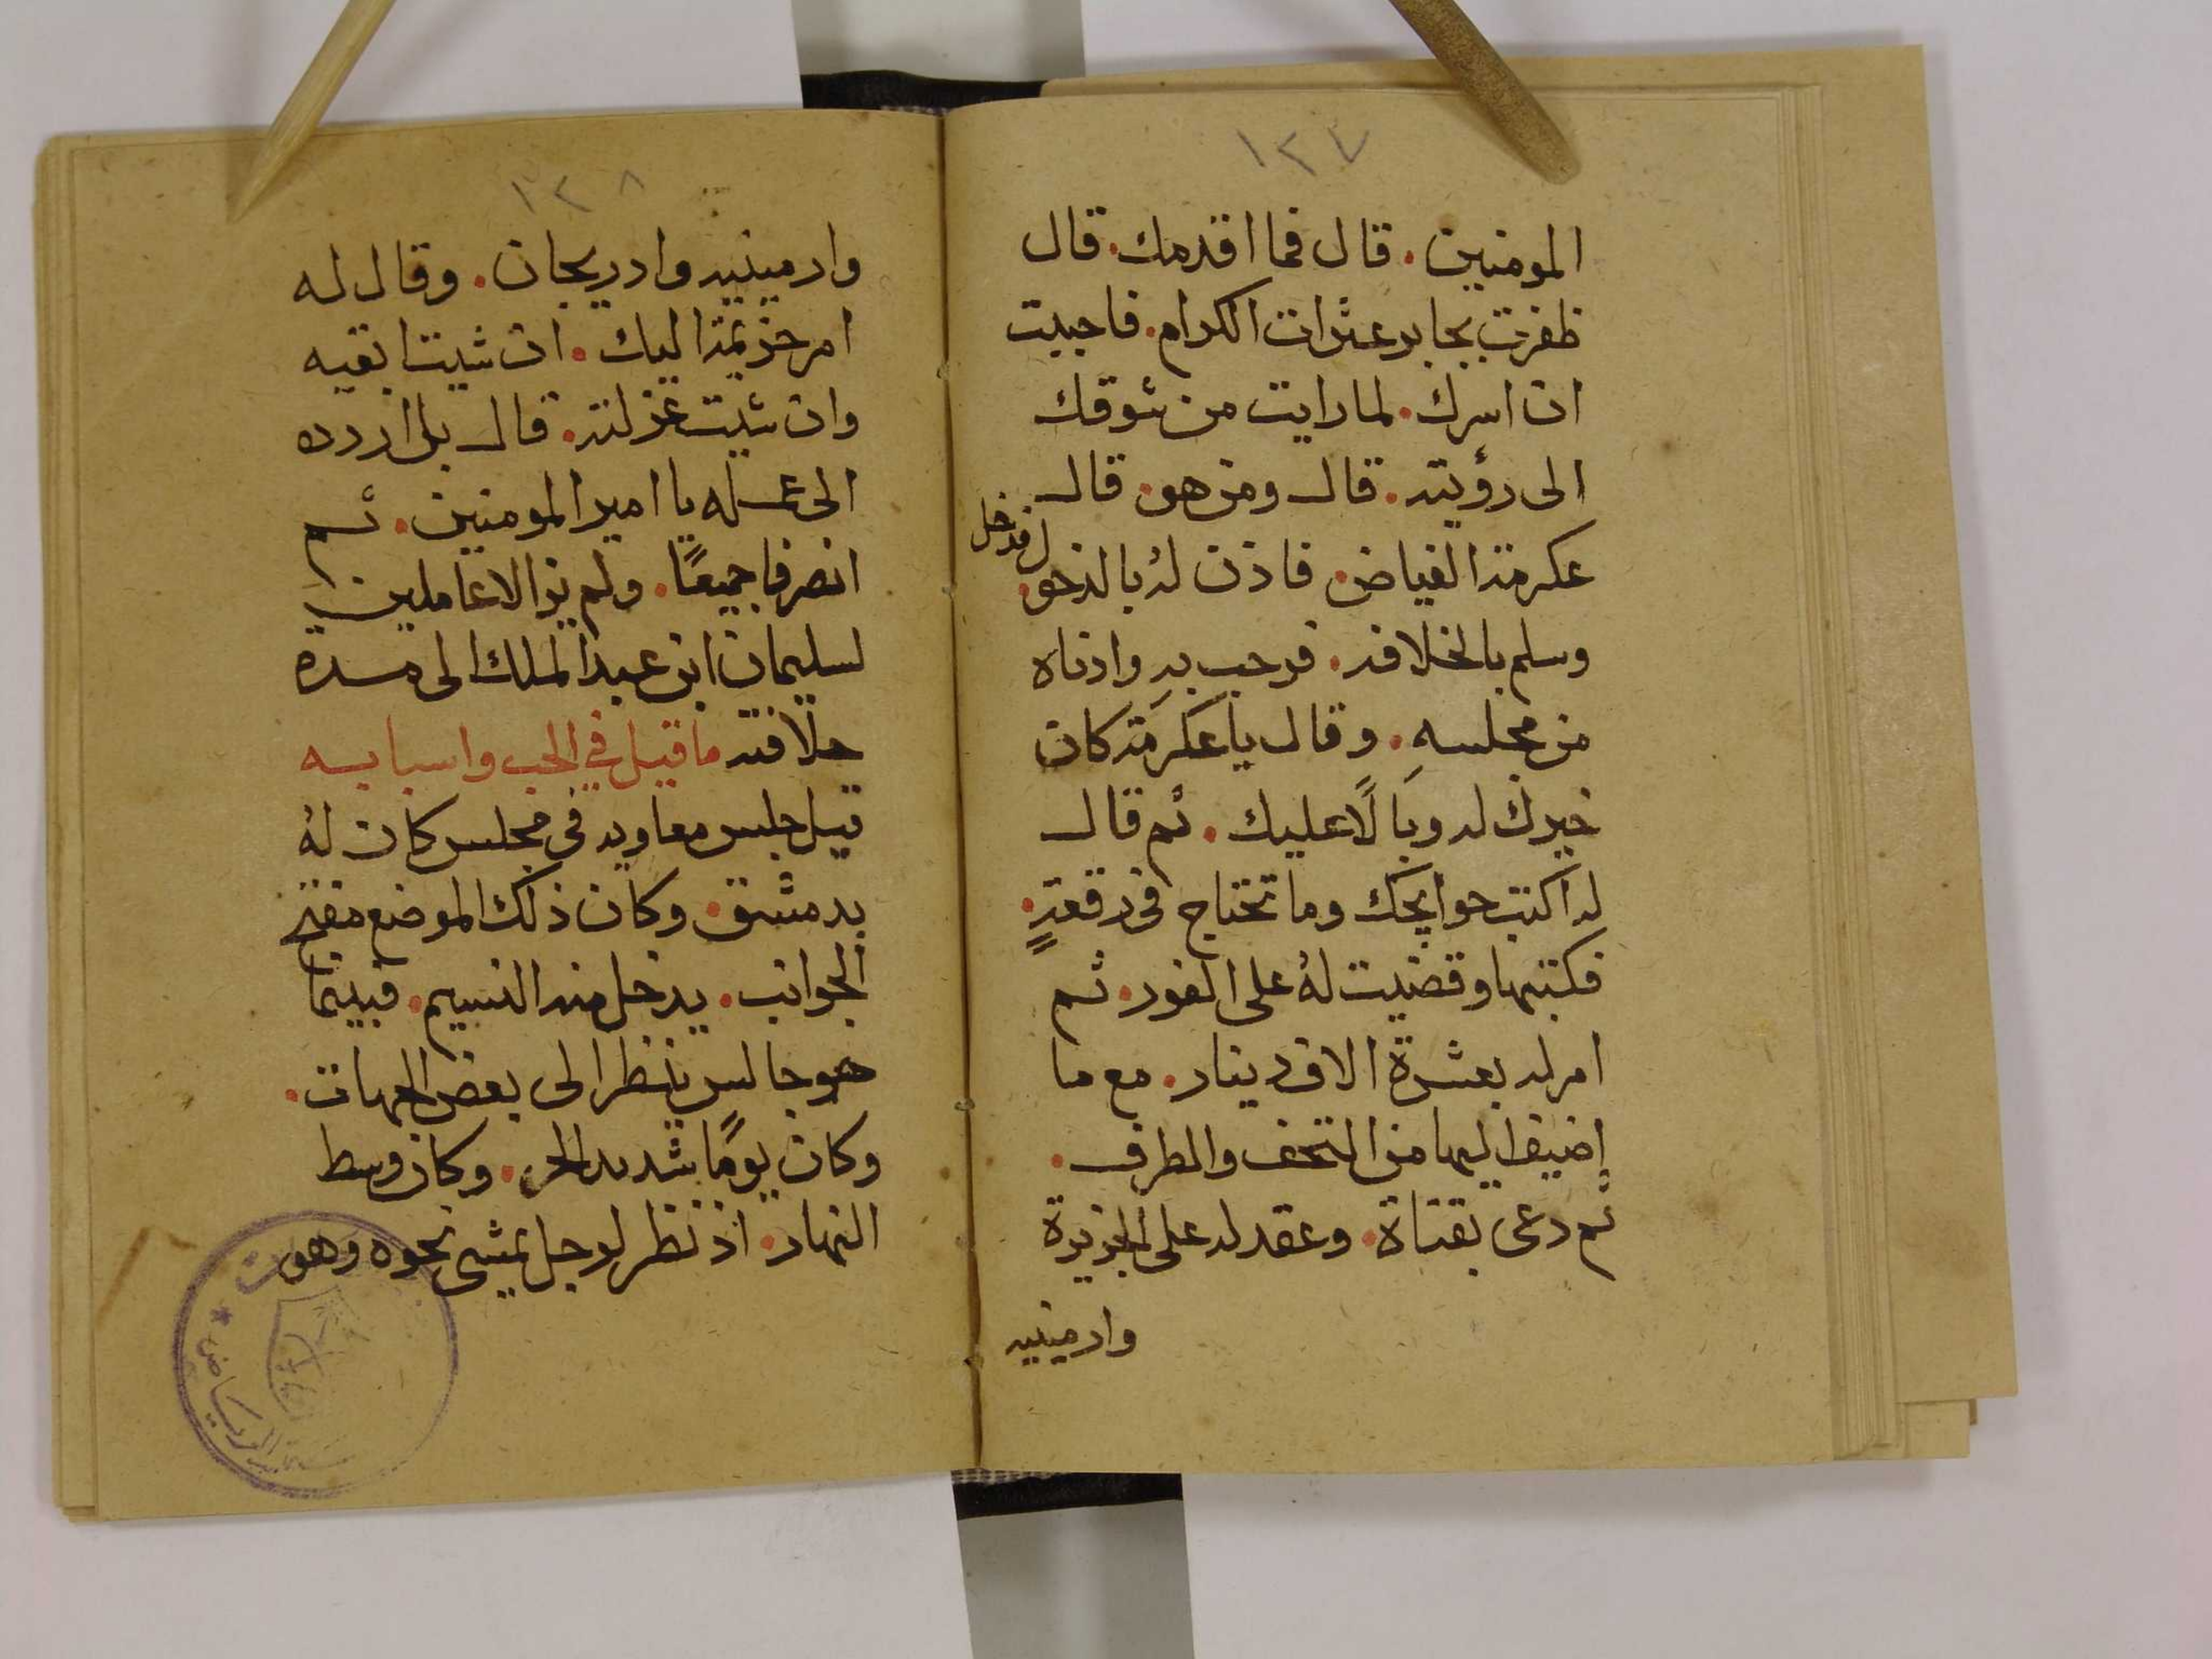 ١٢٧
المومنين . قال فما اقدمك . قال
ظفرت بجابر عثرات الكرام . فاحببت
ان اسرك . لما رايت من شوقك
الى رؤيته . قال ومن هو . قال
عكرمة الفياض . فاذن لهُ بالدخول فدخل
وسلم بالخلافه . فرحب بهِ وادناه
من مجلسهِ . وقال يا عكرمة كان
خيرك له وبالًا عليك . ثم قال
له اكتب حوايجك وما تحتاج في رقعةٍ .
فكتبها وقضيت لهُ على الفور . ثم
امر له بعشرة الاف دينار . مع ما
اضيف اليها من التحف والطرف .
ثم دعى بقناة . وعقد له على الجزيرة
وارمينيه
١٢٨
وارمينيه وادريجان . وقال له
امر خزيمة اليك . ان شيت ابقيه
وان شيت عزلته . قال بل اردده
الى عمله يا امير المومنين . ثم
انصرفا جميعًا . ولم يزالا عاملين
لسليمان ابن عبد الملك الى مدة
خلافته ما قيل في الحب واسبابه
قيل جلس معاويه في مجلس كان لهُ
بدمشق . وكان ذلك الموضع مفتح
الجوانب . يدخل منه النسيم . فبينما
هو جالس ينظر الى بعض الجهات .
وكان يومًا شديد الحر . وكان وسط
النهار . اذ نظر لرجل يمشي نحوه وهو
الرياض